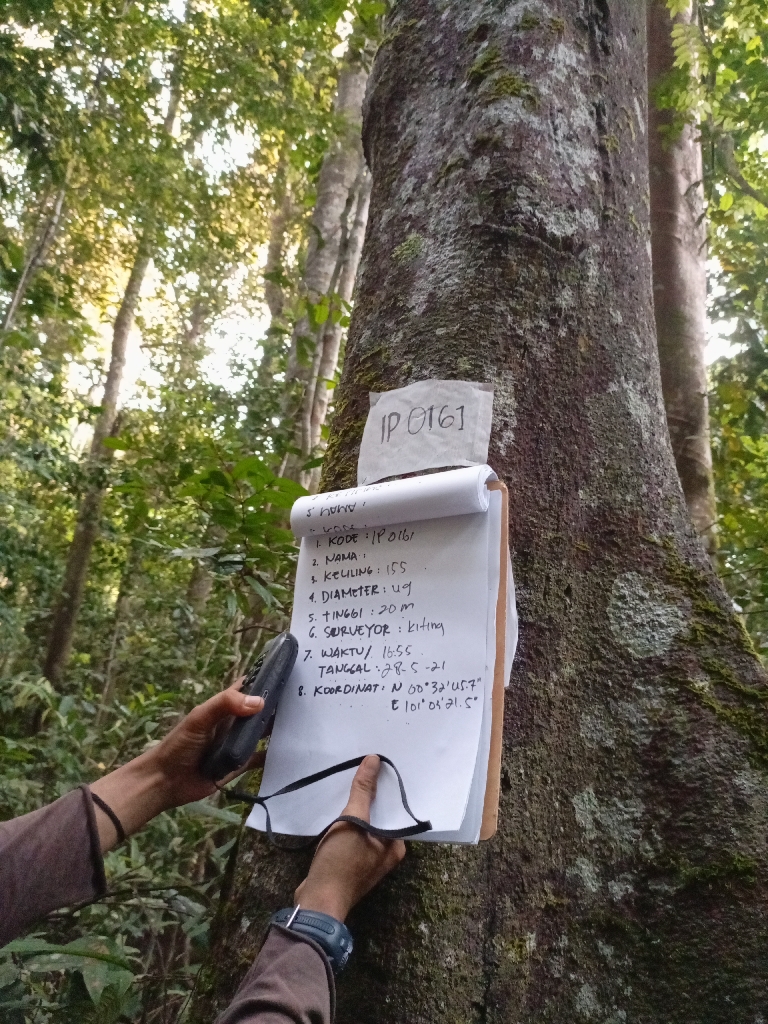 IP 0161
1. KODE : IP 0161
2. NAMA :
3. KELILING : 155
4. DIAMETER : 49
5. TINGGI : 20 m
6. SURVEYOR : Kiting
7. WAKTU/ 16:55
TANGGAL : 28-5-21
8. KOORDINAT : N 00°32'45.7"
E 101°03'21.5"